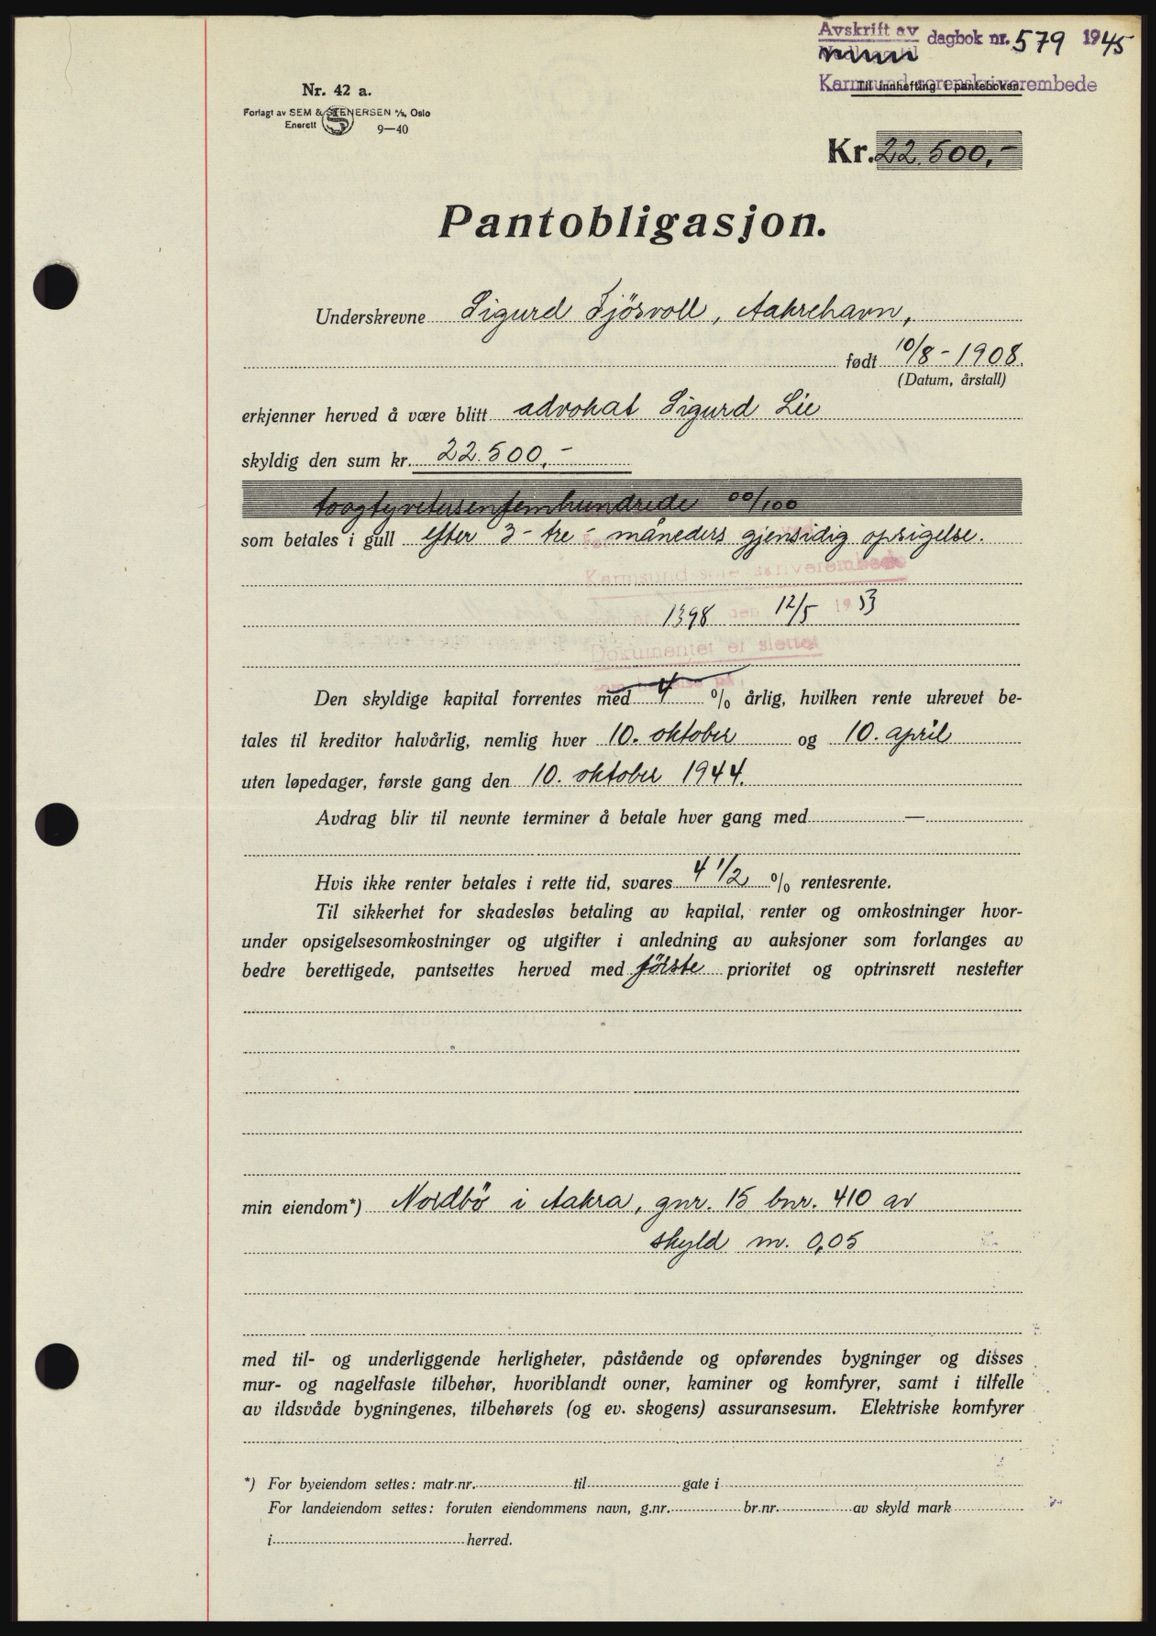 Avskrift av dagbok nr. 579 1945
Karmsund sorenskriverembede
Til innhefting i panteboken.
Nr. 42 a.
Forlagt av SEM & STENERSEN A/S, Oslo
Enerett 9—40
Kr. 22.500,-
Pantobligasjon.
Underskrevne Sigurd Fjösvoll, Aakrehavn,
født 10/8-1908.
(Datum, årstall)
erkjenner herved å være blitt advokat Sigurd Lie
skyldig den sum kr. 22.500,-
toogtyvetusenfemhundrede 00/100
som betales i gull efter 3- tre - måneders gjensidig opsigelse.
Karmsund sorenskriverembede
1398 den 12/5 1953
Dokumentet er slettet
Den skyldige kapital forrentes med 4 % årlig, hvilken rente ukrevet be-
tales til kreditor halvårlig, nemlig hver 10. oktober og 10. april
uten løpedager, første gang den 10. oktober 1944.
Avdrag blir til nevnte terminer å betale hver gang med —
Hvis ikke renter betales i rette tid, svares 4 1/2 % rentesrente.
Til sikkerhet for skadesløs betaling av kapital, renter og omkostninger hvor-
under opsigelsesomkostninger og utgifter i anledning av auksjoner som forlanges av
bedre berettigede, pantsettes herved med förste prioritet og optrinsrett nestefter
min eiendom*) Nordbö i Aakra, gnr. 15 bnr. 410 av
skyld m. 0,05
med til- og underliggende herligheter, påstående og opførendes bygninger og disses
mur- og nagelfaste tilbehør, hvoriblandt ovner, kaminer og komfyrer, samt i tilfelle
av ildsvåde bygningenes, tilbehørets (og ev. skogens) assuransesum. Elektriske komfyrer
*) For byeiendom settes: matr.nr. til gate i
For landeiendom settes: foruten eiendommens navn, g.nr. br.nr. av skyld mark
i herred.